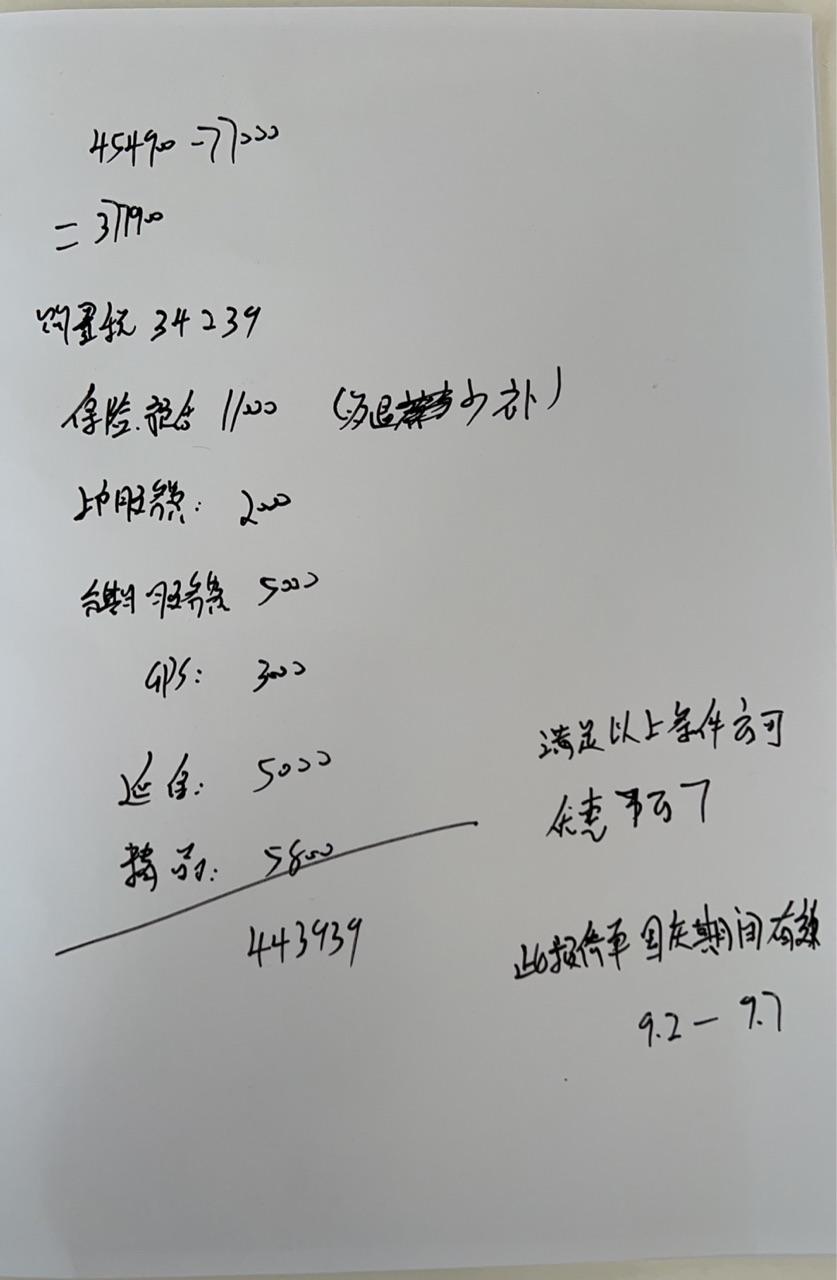 454900-77000
=377900
购置税 34239
保险.预合 11000 (多退少补)
上户服务费: 2000
分期服务费 5000
GPS: 3000
延保: 5000
精品: 5800
443939
满足以上条件方可
优惠
此报价单国庆期间有效
9.2 — 9.7